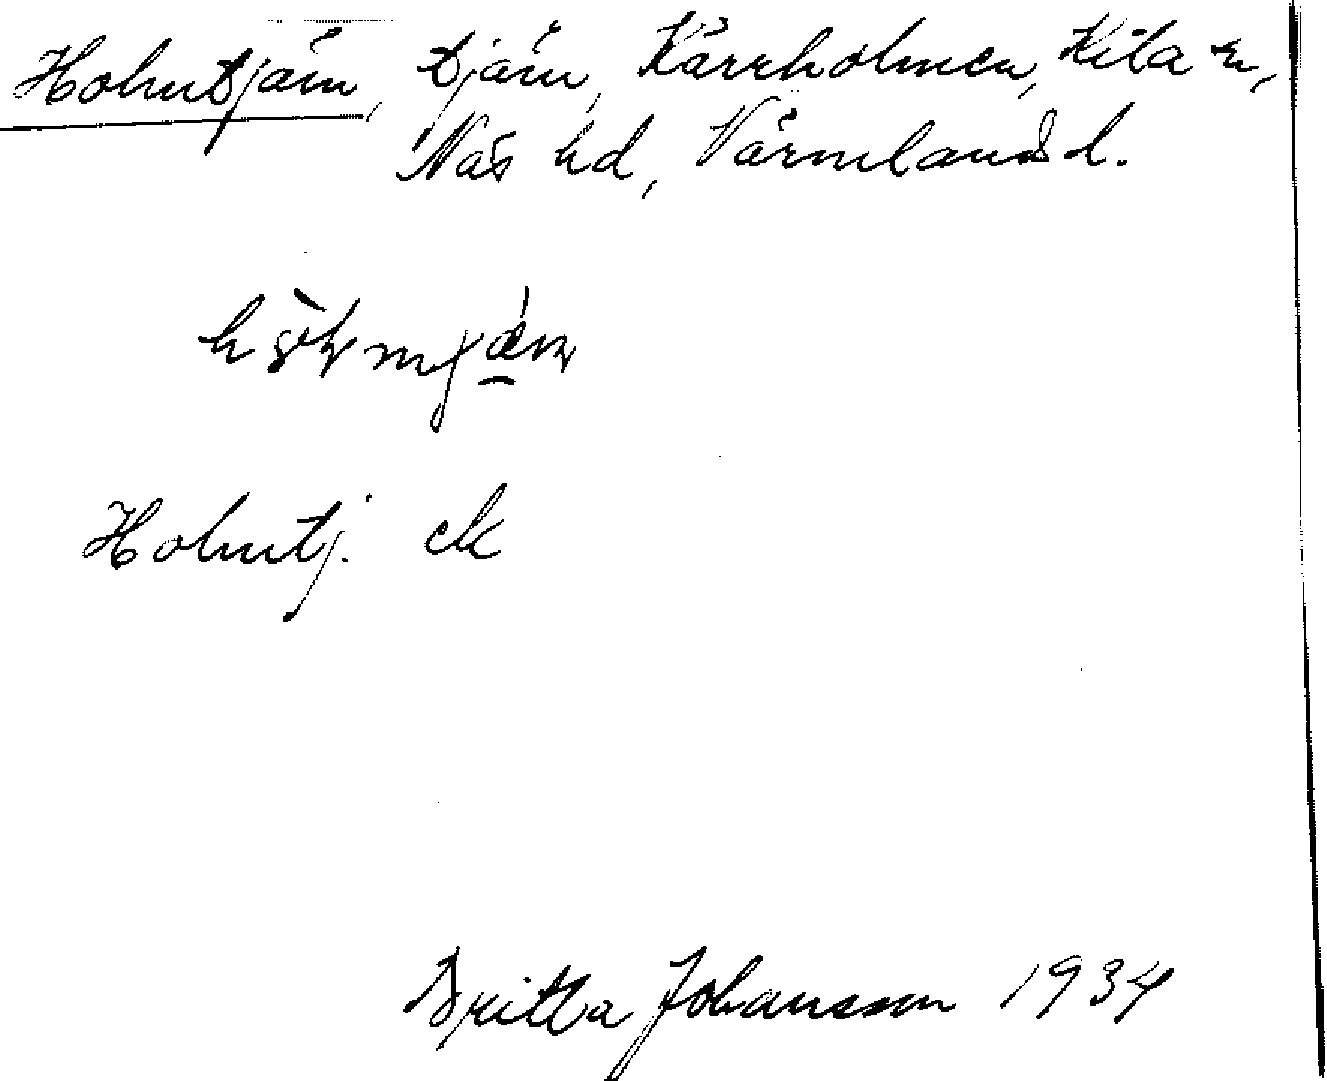 Holmtjärn, tjärn, Kärrholmen, Kila sn,
Näs hd, Värmlands l.
Holmtj. ek
Britta Johansson 1934